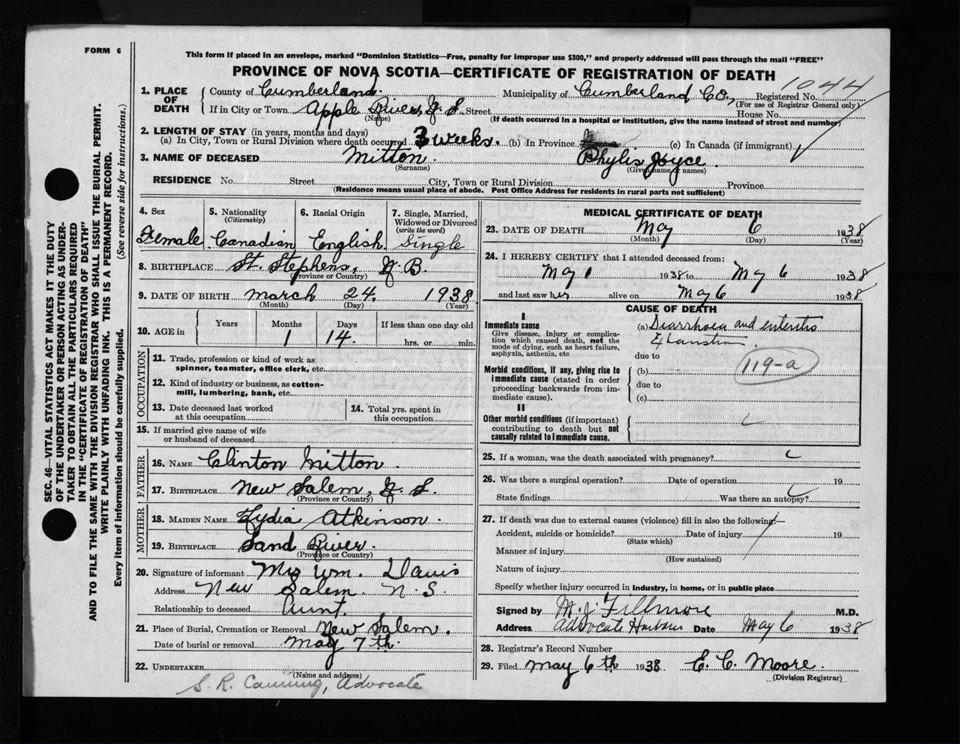 FORM 6
This form if placed in an envelope, marked "Dominion Statistics—Free, penalty for improper use $300," and properly addressed will pass through the mail "FREE"
PROVINCE OF NOVA SCOTIA—CERTIFICATE OF REGISTRATION OF DEATH
1044
1. PLACE OF DEATH
County of Cumberland. Municipality of Cumberland Co., Registered No.
(For use of Registrar General only)
If in City or Town Apple River, N. S. Street House No.
(Name) (If death occurred in a hospital or institution, give the name instead of street and number)
2. LENGTH OF STAY (in years, months and days)
(a) In City, Town or Rural Division where death occurred 3 weeks. (b) In Province (c) In Canada (if immigrant)
3. NAME OF DECEASED Mitton. Phylis Joyce.
(Surname) (Given name or names)
RESIDENCE No. Street City, Town or Rural Division Province
(Residence means usual place of abode. Post Office Address for residents in rural parts not sufficient)
4. Sex 5. Nationality (Citizenship) 6. Racial Origin 7. Single, Married, Widowed or Divorced (write the word)
Female Canadian English. Single
8. BIRTHPLACE St. Stephens, N. B.
(Province or Country)
9. DATE OF BIRTH March 24. 1938
(Month) (Day) (Year)
10. AGE in Years Months Days If less than one day old
1 14. hrs. or min.
OCCUPATION
11. Trade, profession or kind of work as spinner, teamster, office clerk, etc.
12. Kind of industry or business, as cotton-mill, lumbering, bank, etc.
13. Date deceased last worked at this occupation 14. Total yrs. spent in this occupation
15. If married give name of wife or husband of deceased
FATHER
16. NAME Clinton Mitton.
17. BIRTHPLACE New Salem, N. S.
(Province or Country)
MOTHER
18. MAIDEN NAME Lydia Atkinson.
19. BIRTHPLACE Sand River.
(Province or Country)
20. Signature of informant Mrs Wm. Davis
Address New Salem N. S.
Relationship to deceased Aunt.
21. Place of Burial, Cremation or Removal New Salem.
Date of burial or removal May 7th
22. UNDERTAKER
(Name and address)
S. R. Canning, Advocate
MEDICAL CERTIFICATE OF DEATH
23. DATE OF DEATH May 6 1938
(Month) (Day) (Year)
24. I HEREBY CERTIFY that I attended deceased from:
May 1 1938 to May 6 1938
and last saw her alive on May 6 1938
CAUSE OF DEATH
I
Immediate cause
Give disease, injury or complication which caused death, not the mode of dying, such as heart failure, asphyxia, asthenia, etc
(a) Diarrhoea and enteritis
due to
119-a
Morbid conditions, if any, giving rise to immediate cause (stated in order proceeding backwards from immediate cause).
(b)
due to
(c)
II
Other morbid conditions (if important) contributing to death but not causally related to immediate cause.
25. If a woman, was the death associated with pregnancy?
26. Was there a surgical operation? Date of operation 19
State findings Was there an autopsy?
27. If death was due to external causes (violence) fill in also the following:—
Accident, suicide or homicide? Date of injury 19
(State which)
Manner of injury
(How sustained)
Nature of injury
Specify whether injury occurred in industry, in home, or in public place
Signed by M. J. Fillmore M.D.
Address Advocate Harbour Date May 6 1938
28. Registrar's Record Number
29. Filed May 6th 1938 E. C. Moore.
(Division Registrar)
SEC. 46—VITAL STATISTICS ACT MAKES IT THE DUTY
OF THE UNDERTAKER OR PERSON ACTING AS UNDER-
TAKER TO OBTAIN ALL THE PARTICULARS REQUIRED
IN THE "CERTIFICATE OF REGISTRATION OF DEATH"
AND TO FILE THE SAME WITH THE DIVISION REGISTRAR WHO SHALL ISSUE THE BURIAL PERMIT.
WRITE PLAINLY WITH UNFADING INK. THIS IS A PERMANENT RECORD.
Every item of information should be carefully supplied. (See reverse side for instructions.)